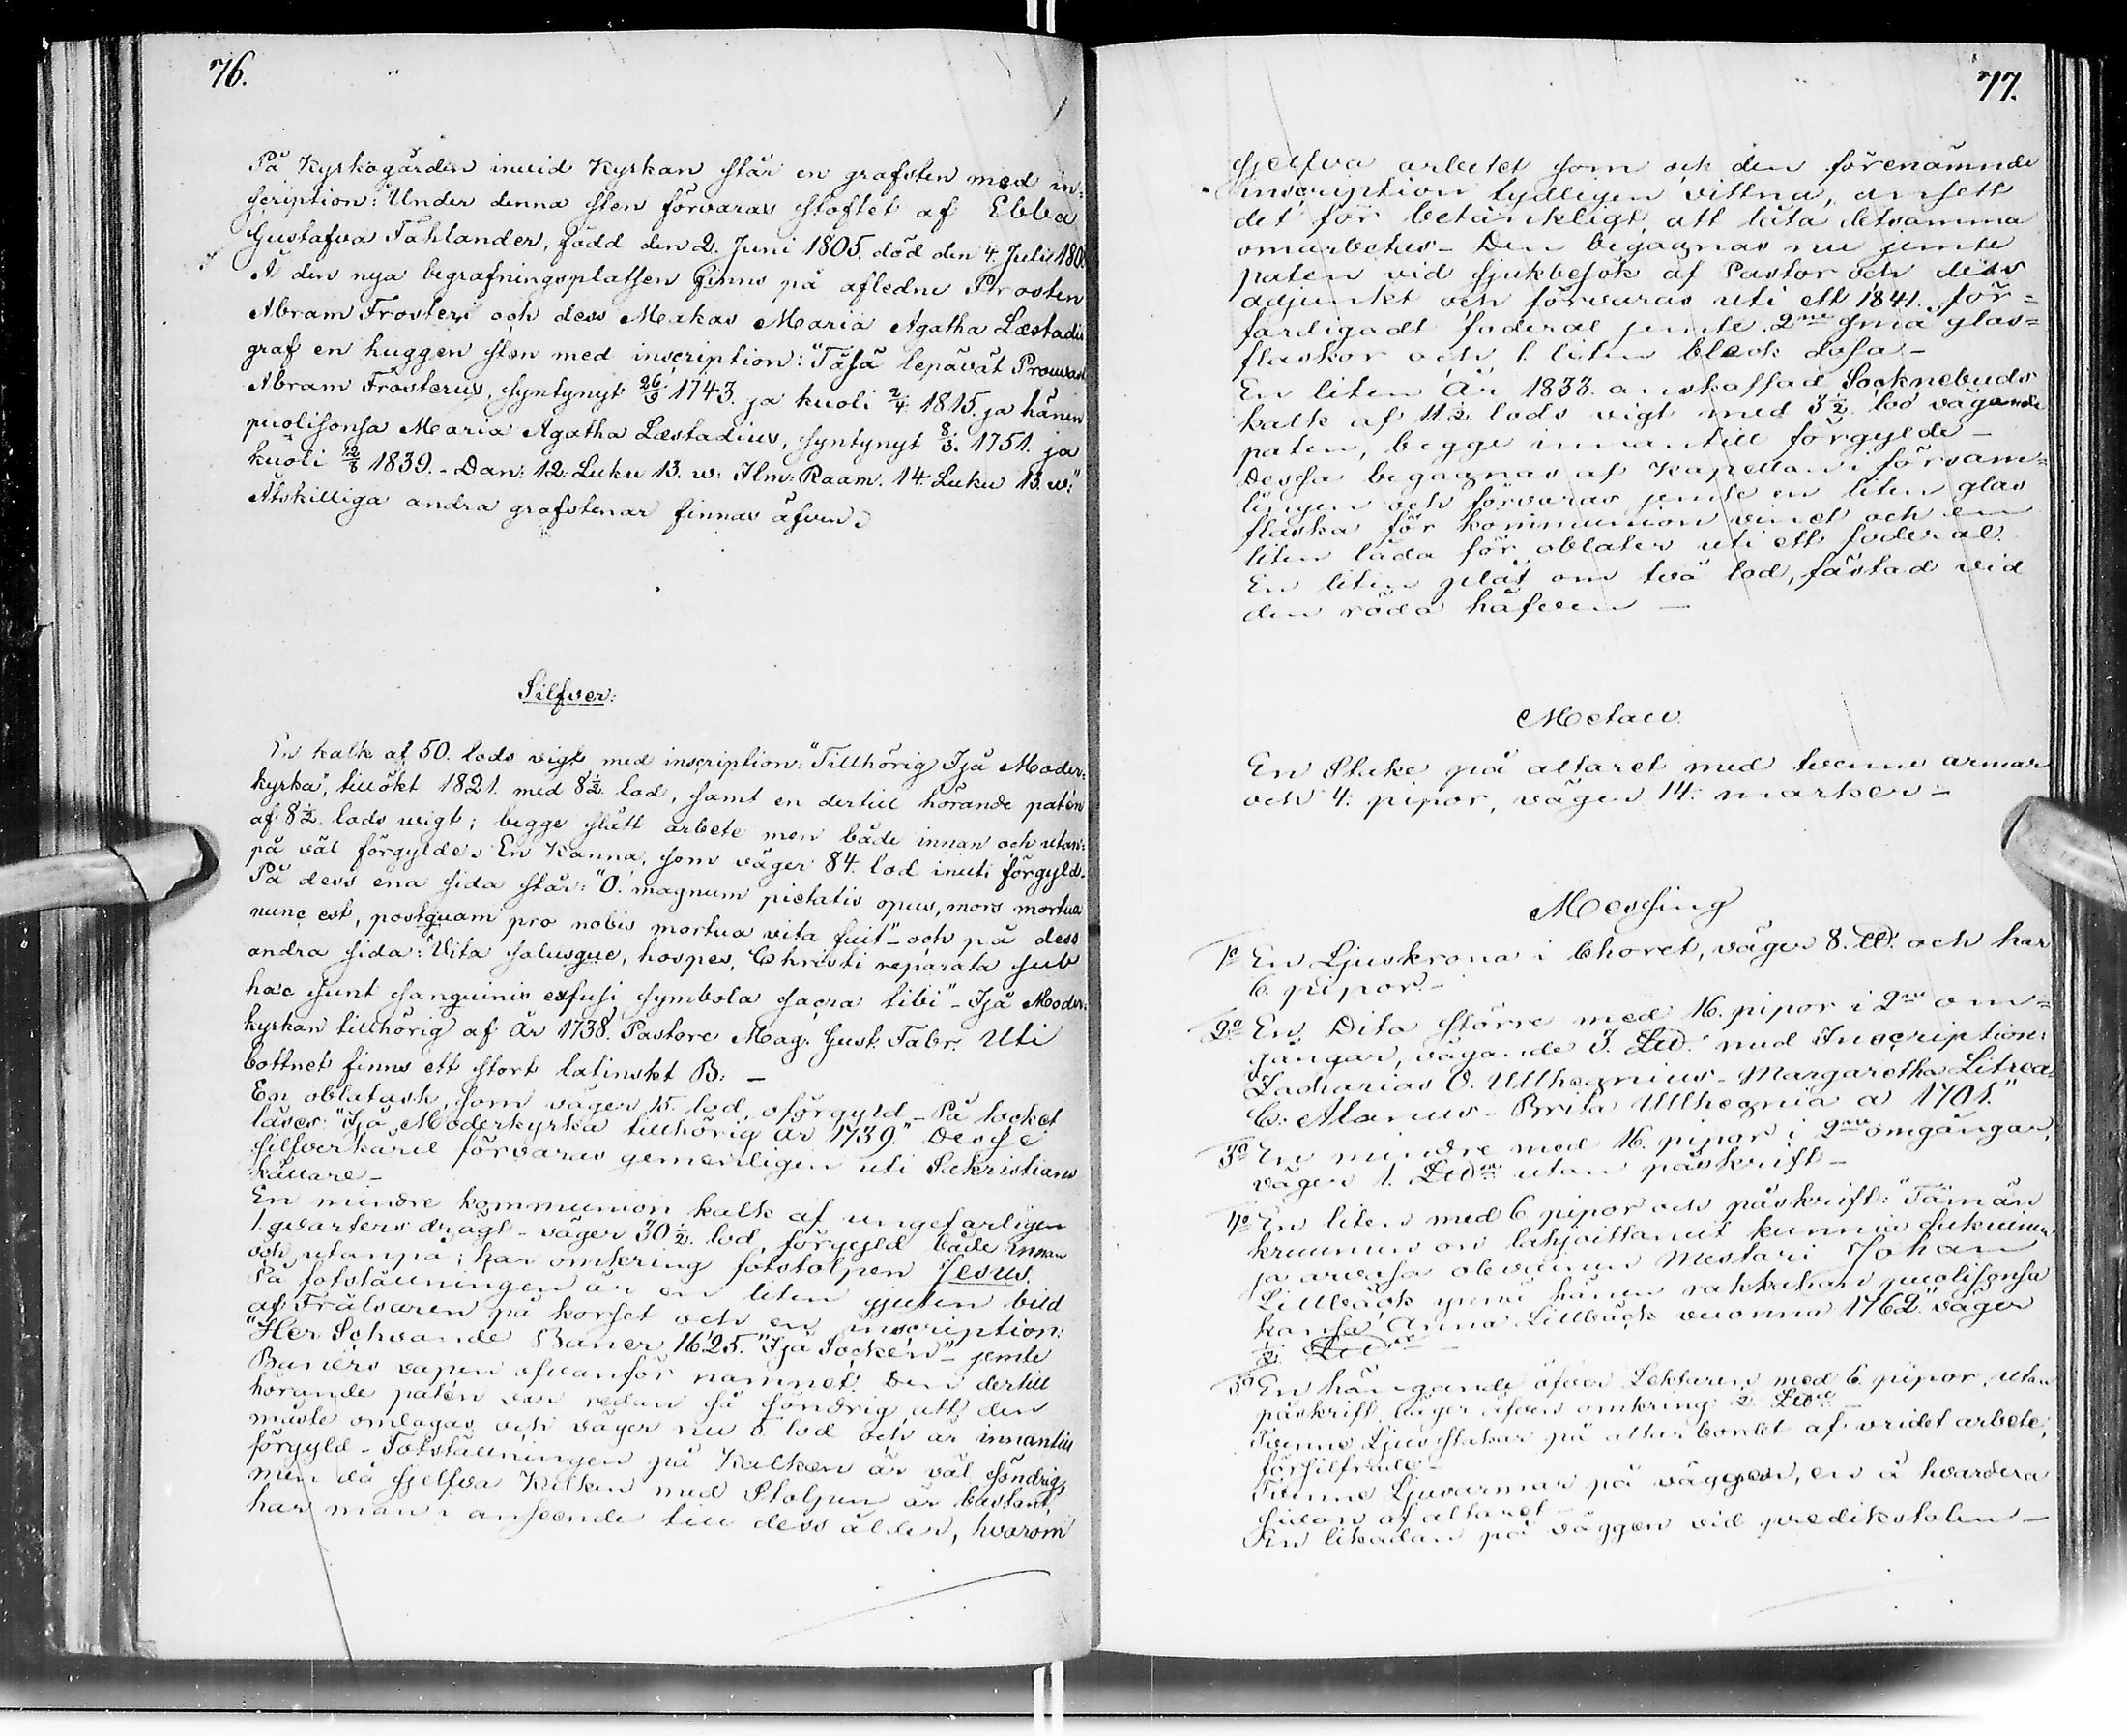 76.
På Kyrkogården invid Kyrkan står en grafsten med in-
scription: "Under denna sten förvaras stoftet af Ebba
Gustafva Tahlander, född den 2. Juni 1805. död den 4. Julii 180
Å den nya begrafningsplatsen finns på afledne Prosten
Abram Frosteri och dess Makas Maria Agatha Læstadii
graf en huggen sten med inscription: "Täsä lepävät Prowast
Abram Frosterus, syntynyt 26/9 1743. ja kuoli 2/4 1815. ja hänen
puolisonsa Maria Agatha Læstadius, syntynyt 8/3. 1751. ja
kuoli 12/8 1839. - Dan: 12. Luku 13. w: Ilm: Raam. 14. Luku 13. w:"
Åtskilliga andra grafstenar finnas äfven.
Silfver:
En kalk af 50. lods vigt med inscription: "Tillhörig Ijå Moder-
kyrka", tillökt 1821. med 8½ lod, samt en dertill hörande patén
af 8½ lods wigt; begge slätt arbete men både innan och utan-
på väl förgylde. En Kanna, som väger 84. lod inuti förgyld.
På dess ena sida står: "O. magnum pietatis opus, mors mortua
nunc est, postquam pro nobis mortua vita fuit" - och på dess
andra sida: "Vita salusque, hospes, Christi reparata sub
hac sunt sanguinis exfusi symbola sacra tibi" - Ijå Moder-
kyrkan tillhörig af År 1738. Pastore Mag. Gust. Fabr. Uti
bottnet finns ett stort latinskt B: -
En oblatask, som väger 15. lod, oförgyld - På locket
läses: "Ijå Moderkyrka tillhörig År 1739." Desse
silfverkaril förvaras gemenligen uti Sakristians
källare -
En mindre kommunion kalk af ungefärligen
1. qvarters drägt - väger 30½. lod förgyld både innan
och utanpå; har omkring fotstolpen Jesus.
På fotställningen är en liten gjuten bild
af Frälsaren på korset och en inscription:
"Her Schvande Baner 1625. "Ijå Socken" - jemte
Baniers vapen ofvanför namnet. Den dertill
hörande patén var redan så söndrig, att den
måste omlagas och väger nu 5 lod och är innantill
förgyld - Fotställningen på Kalken är väl söndrig,
men då sjelfva Kalken med Stolpen är bastant,
har man i anseende till dess ålder, hvarom
77.
sjelfva arbetet som ock den förenämnde
inscription tydligen vittna, ansett
det för betänkligt, att låta detsamma
omarbetas - Den begagnas nu jemte
paten vid sjukbesök af Pastor och dess
adjunkt och förvaras uti ett 1841. för-
färdigadt foderal jemte 2ne små glas-
flaskor och 1. liten bleck dosa -
En liten År 1833. anskaffad Socknebuds
kalk af 11½ lods vigt med 3½ lod vägande
paten, begge innantill förgylde -
Dessa begagnas af Kapellan i församl-
lingen och förvaras jemte en liten glas
flaska för kommunion vinet och en
liten låda för oblater uti ett foderal.
En liten plåt om två lod, fästad vid
den röda håfven -
Metall.
En Stake på altaret med tvenne armar
och 4: pipor, väger 14: marker -
Messing
1o En Ljuskrona i Choret, väger 8. och har
6. pipor. -
2o En Dito större med 16. pipor i 2ne om-
gångar, vägande 3. med Inscription:
Zacharias O. Ullhegnius - Margaretha Litrea
C: Alanus - Brita Ullhegnia a 1701."
3o En mindre med 16. pipor i 2ne omgångar,
väger 1. utan påskrift -
4o En liten med 6 pipor och påskrift: "Tämän
kruunun on lahjoittanut kunnia sukuinen
ja arvosa olevainen Mestari Johan
Lillbäck ynnä hänen rakkahan puolisonsa
kansa Anna Lillbäck vuonna 1762." väger
½
5o En hängande öfver Lekturen med 6. pipor, utan
påskrift, väger äfven omkring ½
Tvenne Ljusstakar på altarbordet af vridet arbete,
försilfrade -
Tvenne Ljusarmar på väggen, en å hvardera
sidan af altaret -
En likadan på väggen vid predikstolen -